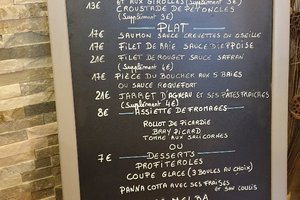 ET AUX GIROLLES (Supplément 3€)
13€ CROUSTADE DE PÉTONCLES
(Supplément 3€)
PLAT
17€ SAUMON SAUCE CREVETTES OU OSEILLE
17€ FILET DE RAIE SAUCE DIEPPOISE
21€ FILET DE ROUGET SAUCE SAFRAN
(Supplément 4€)
17€ PIÈCE DU BOUCHER AUX 5 BAIES
OU SAUCE ROQUEFORT
21€ JARRET D'AGNEAU ET SES PÂTES FRAÎCHES
(Supplément 4€)
8€ ASSIETTE DE FROMAGES
ROLLOT DE PICARDIE
BRAY PICARD
TOMME AUX SALICORNES
OU
7€ DESSERTS
PROFITEROLES
COUPE GLACÉ (3 BOULES AU CHOIX)
PANNA COTTA AVEC SES FRAISES
ET SON COULIS
MELBA